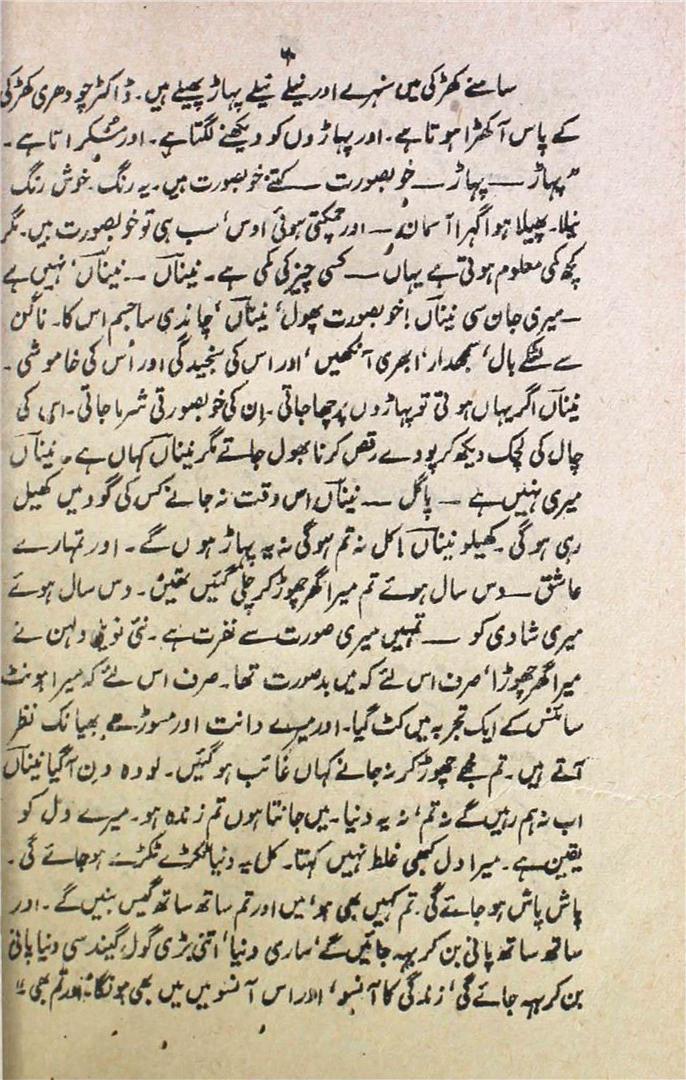 ۶
سامنے کھڑکی میں سنہرے اور نیلے نیلے پہاڑ پھیلے ہیں۔ ڈاکٹر چودھری کھڑکی
کے پاس آکھڑا ہوتا ہے۔ اور پہاڑوں کو دیکھنے لگتا ہے۔ اور مُسکراتا ہے۔
”پہاڑ — پہاڑ — خوبصورت — کتنے خوبصورت ہیں۔ یہ رنگ۔ خوش رنگ
نیلا۔ پھیلا ہوا گہرا آسمان — اور چمکتی ہوئی اوس‘ سب ہی تو خوبصورت ہیں۔ مگر
کچھ کمی معلوم ہوتی ہے یہاں — کسی چیز کی کمی ہے۔ نیناں — نیناں‘ نہیں ہے
— میری جان سی نیناں! خوبصورت پھول‘ نیناں‘ چاندی سا جسم اس کا۔ ناگن
سے لٹکے بال‘ سمجھدار‘ ابھری آنکھیں‘ اور اس کی سنجیدگی اور اُس کی خاموشی۔
نیناں اگر یہاں ہوتی تو پہاڑوں پر چھا جاتی۔ اِن کی خوبصورتی شرما جاتی۔ اس کی
چال کی لچک دیکھ کر پودے رقص کرنا بھول جاتے مگر نیناں کہاں ہے۔ نیناں
میری نہیں ہے — پاگل — نیناں اس وقت نہ جانے کس کی گود میں کھیل
رہی ہوگی۔ کھیلو نیناں! کل نہ تم ہوگی نہ یہ پہاڑ ہوں گے۔ اور تمہارے
عاشق — دس سال ہوئے تم میرا گھر چھوڑ کر چلی گئیں تھیں۔ دس سال ہوئے
میری شادی کو — تمہیں میری صورت سے نفرت ہے۔ نئی نویلی دلہن نے
میرا گھر چھوڑا‘ صرف اس لئے کہ میں بدصورت تھا۔ صرف اس لئے کہ میرا ہونٹ
سائنس کے ایک تجربہ میں کٹ گیا۔ اور میرے دانت اور مسوڑھے بھیانک نظر
آتے ہیں۔ تم مجھے چھوڑ کر نہ جانے کہاں غائب ہو گئیں۔ لو وہ دن آگیا نیناں
اب نہ ہم رہیں گے نہ تم‘ نہ یہ دنیا۔ میں جانتا ہوں تم زندہ ہو۔ میرے دل کو
یقین ہے۔ میرا دل کبھی غلط نہیں کہتا۔ کل یہ دنیا ٹکڑے ٹکڑے ہو جائے گی۔
پاش پاش ہو جائے گی۔ تم کہیں بھی ہو‘ میں اور تم ساتھ ساتھ گیس بنیں گے۔ اور
ساتھ ساتھ پانی بن کر بہہ جائیں گے‘ ساری دنیا‘ اتنی بڑی گول گیند سی دنیا پانی
بن کر بہہ جائے گی‘ زندگی کا آنسو‘ اور اس آنسو میں میں بھی ہونگا اور تم بھی